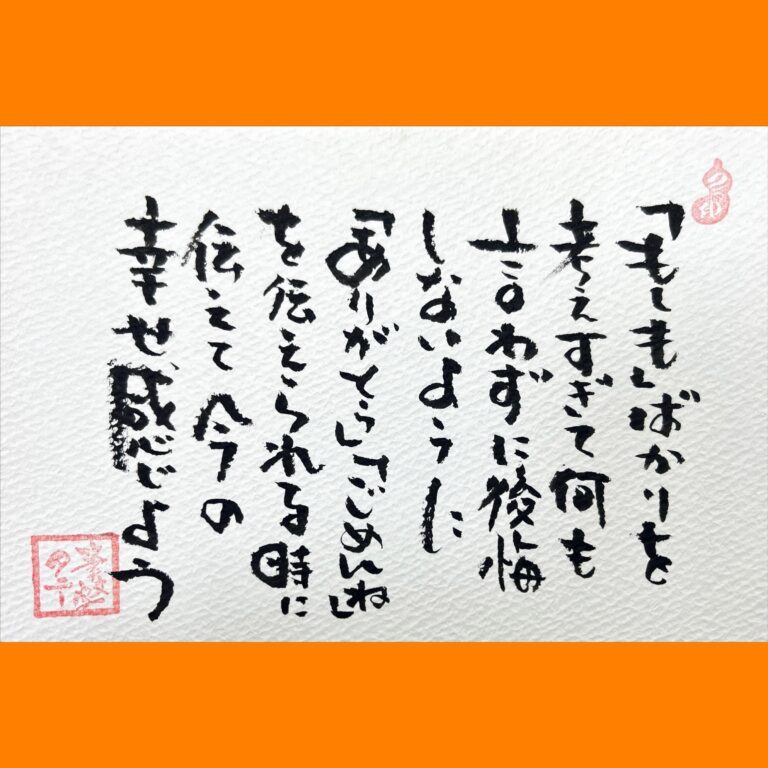 「もしも」ばかりを
考えすぎて何も
言わずに後悔
しないように
「ありがとう」「ごめんね」
を伝えられる時に
伝えて今の
幸せ感じよう